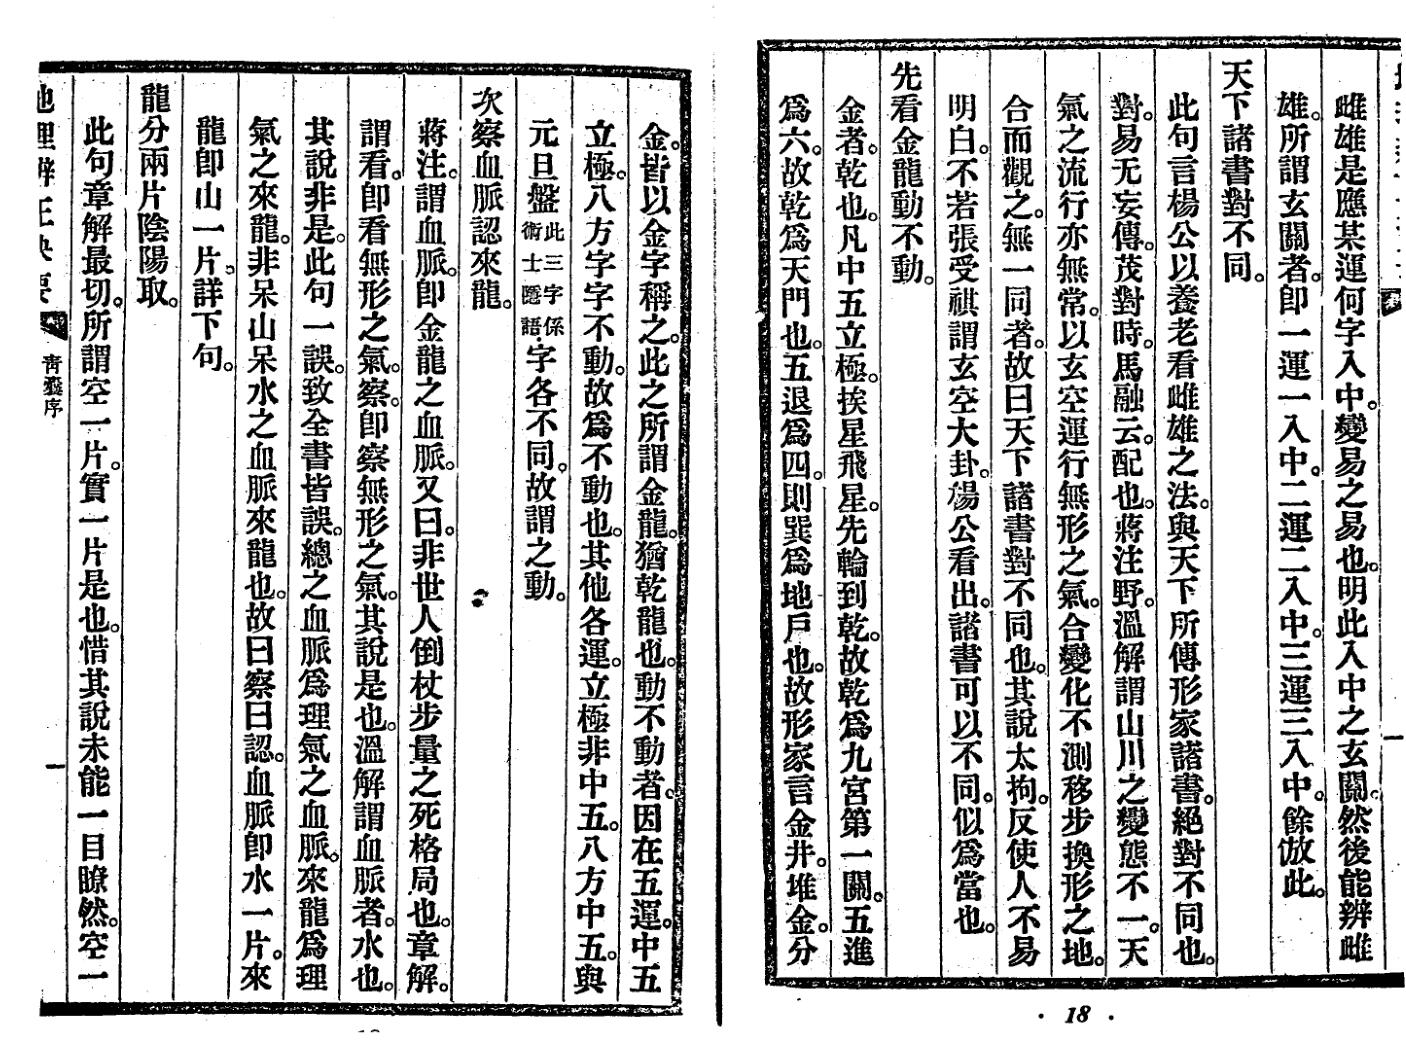 雌雄是應某運何字入中。變易之易也。明此入中之玄關。然後能辨雌
雄。所謂玄關者。卽一運一入中。二運二入中。三運三入中。餘倣此。
天下諸書對不同。
此句言楊公以養老看雌雄之法。與天下所傳形家諸書。絕對不同也。
對。易无妄傳。茂對時。馬融云。配也。蔣注野。溫解謂山川之變態不一。天
氣之流行亦無常。以玄空運行無形之氣。合變化不測移步換形之地。
合而觀之。無一同者。故曰天下諸書對不同也。其說太拘。反使人不易
明白。不若張受祺謂玄空大卦。楊公看出。諸書可以不同。似爲當也。
先看金龍動不動。
金者。乾也。凡中五立極。挨星飛星。先輪到乾。故乾爲九宮第一關。五進
爲六。故乾爲天門也。五退爲四。則巽爲地戶也。故形家言金井。堆金。分
金。皆以金字稱之。此之所謂金龍。猶乾龍也。動不動者。因在五運。中五
立極。八方字字不動。故爲不動也。其他各運。立極非中五。八方中五。與
元旦盤此三字係術士隱語。字各不同。故謂之動。
次察血脈認來龍。
蔣注。謂血脈。卽金龍之血脈。又曰。非世人倒杖步量之死格局也。章解。
謂看。卽看無形之氣。察。卽察無形之氣。其說是也。溫解謂血脈者。水也。
其說非是。此句一誤。致全書皆誤。總之血脈爲理氣之血脈。來龍爲理
氣之來龍。非呆山呆水之血脈來龍也。故曰察曰認。血脈卽水一片。來
龍卽山一片。詳下句。
龍分兩片陰陽取。
此句章解最切。所謂空一片。實一片是也。惜其說未能一目瞭然。空一
地理辨正抉要
靑囊序
一
一
· 18 ·